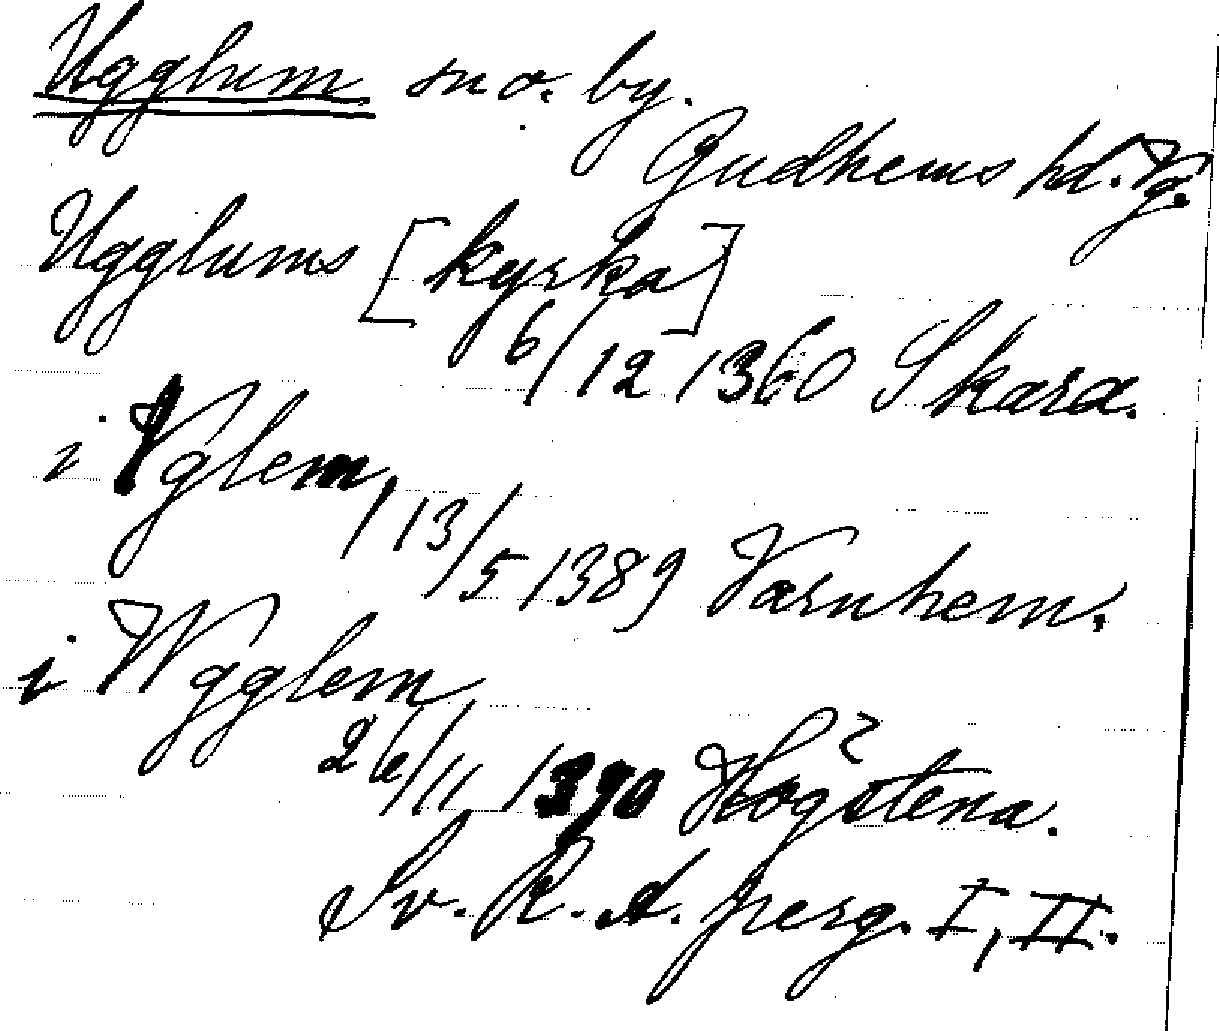 Ugglum sn o. by.
Gudhems hd. Vg.
Ugglums [kyrka]
6/12 1360 Skara.
i Vglem,
13/5 1389 Varnhem.
i Wgglem,
26/11 1390 Högstena.
Sv. R. A. perg. I, II.